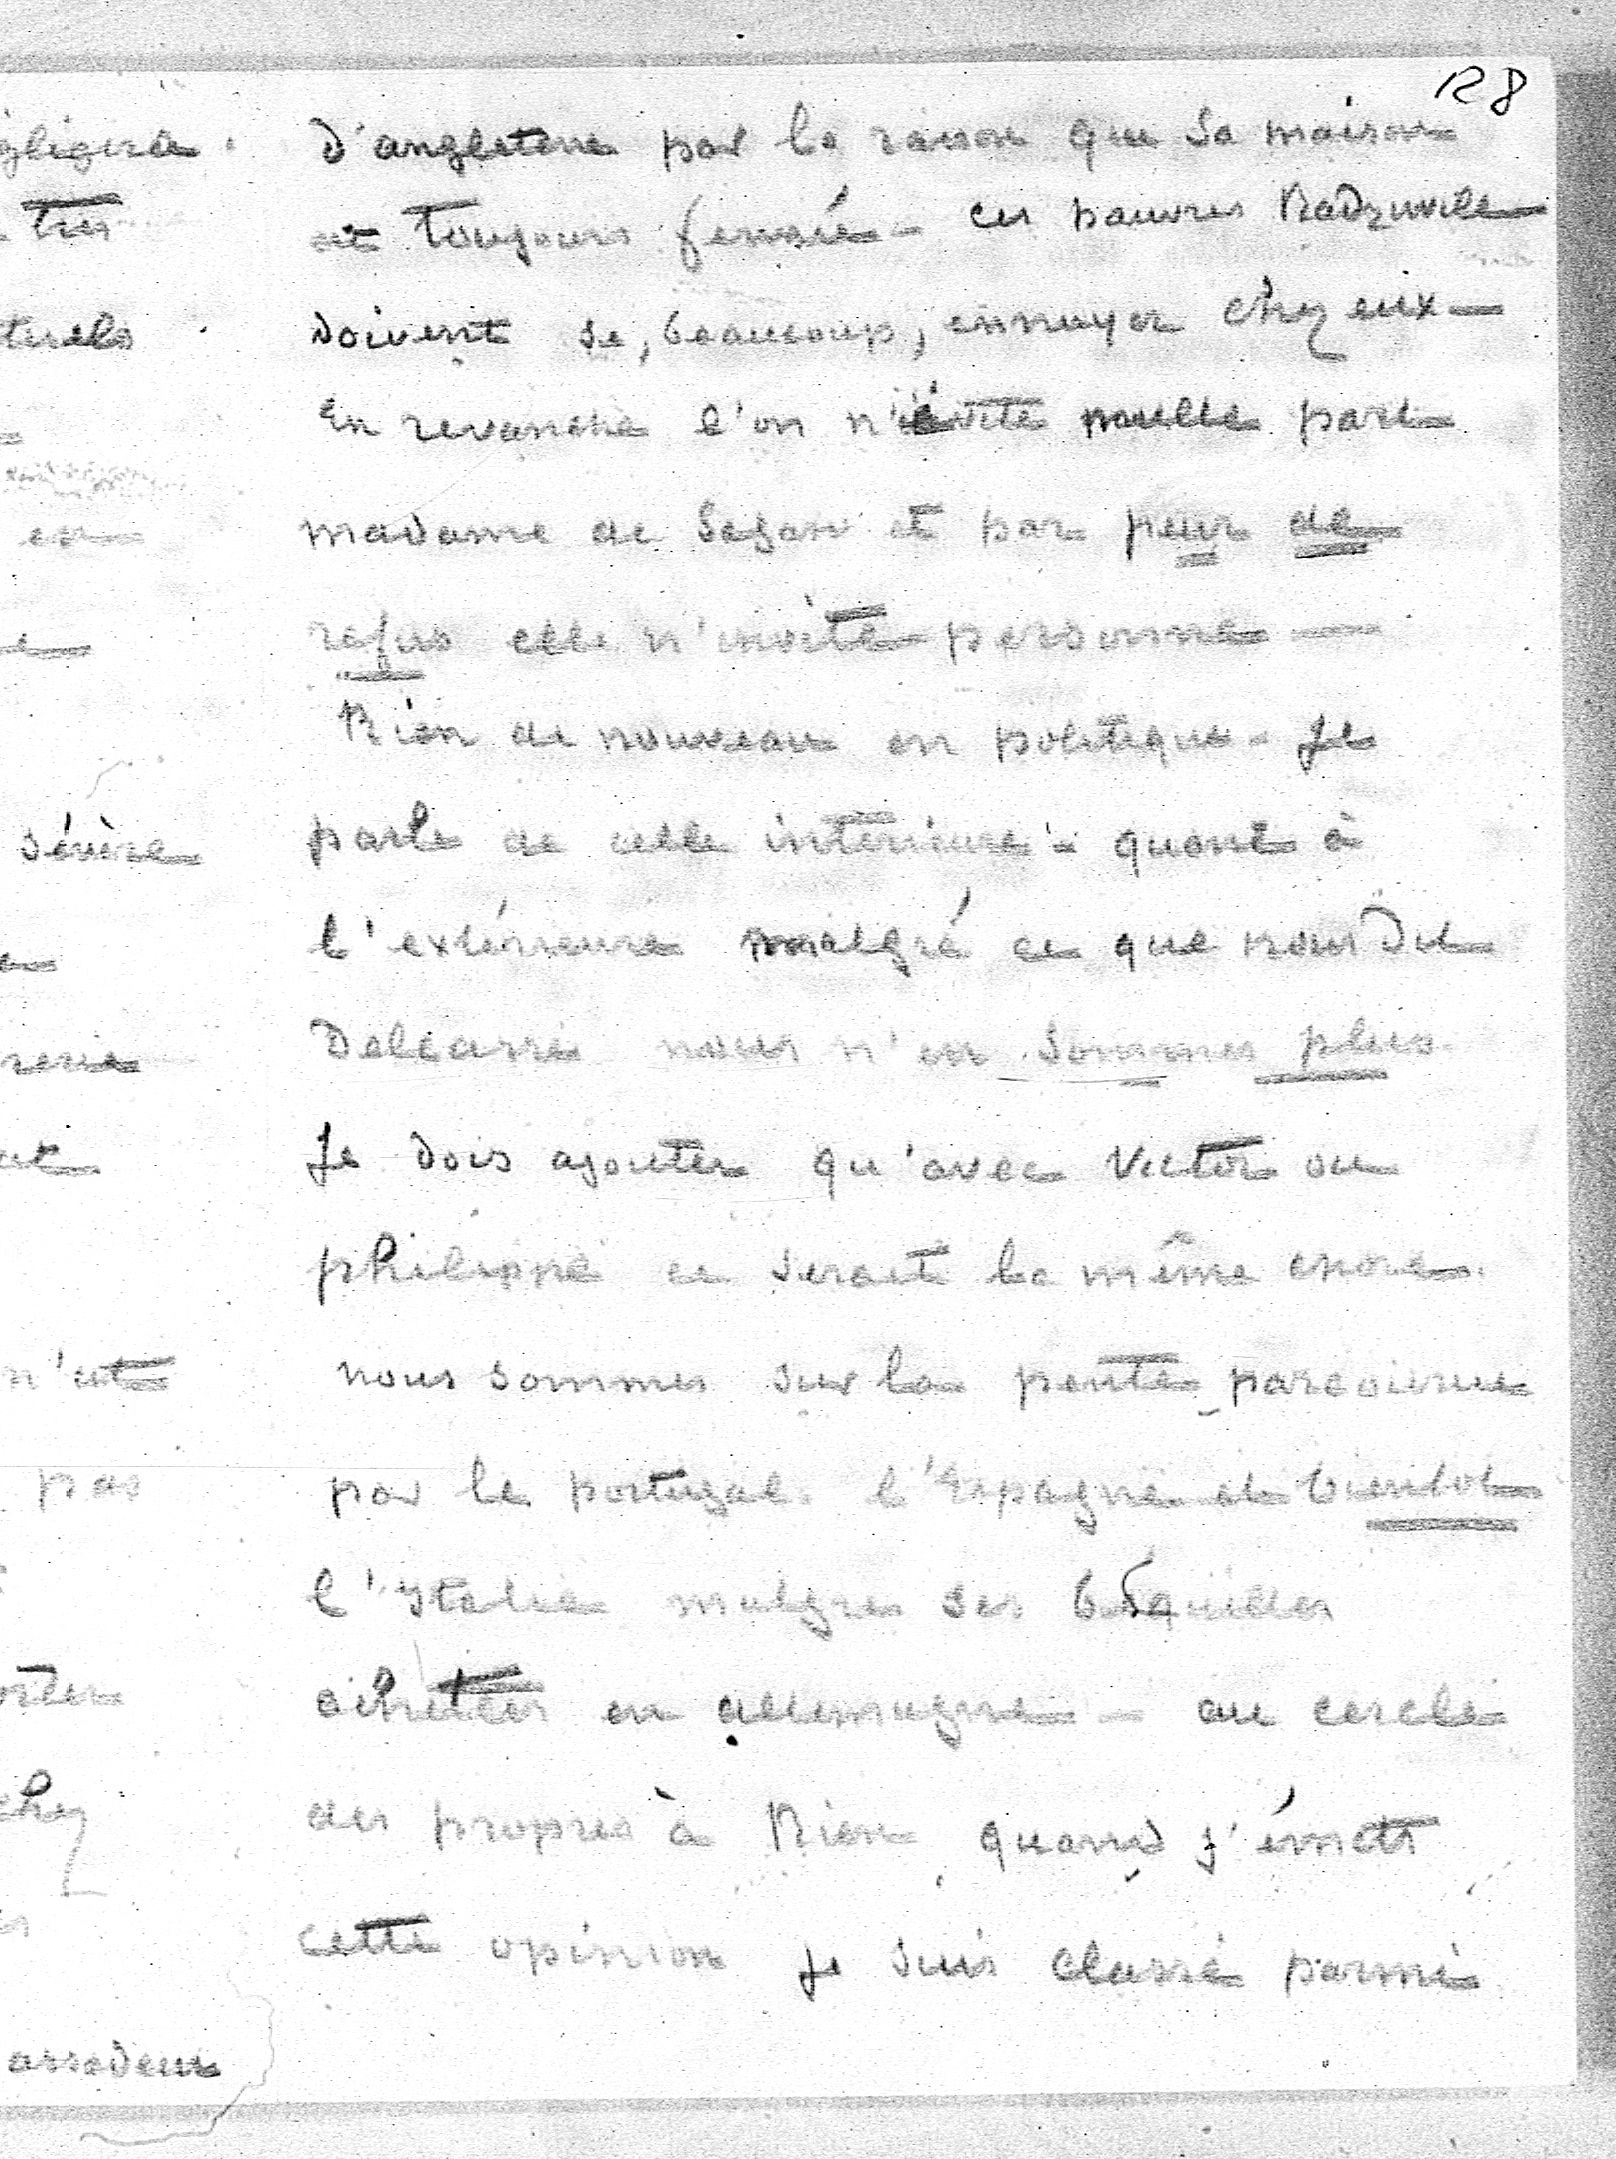 128
d'angleterre par la raison que sa maison
est toujours fermée - ces pauvres Radziwile
doivent se, beaucoup, ennuyer chez eux -
En revanche l'on n'invite nulle part
madame de Sagan et par peur de
refus elle n'invite personne -
Rien de nouveau en politique - Je
parle de celle intérieure - quant à
l'extérieure malgré ce que nous dit
Delcassé nous n'en sommes plus.
Je dois ajouter qu'avec Victor ou
philippe ce serait la même chose.
nous sommes sur la pente parcourue
par le portugal l'Espagne et bientot
l'Italie malgre ses béquilles
achetées en allemagne - au cercle
des propres à Rien quand j'émets
cette opinion je suis classé parmi
gligera.
très
turels
sévère
n'est
pas
chez
assadeur